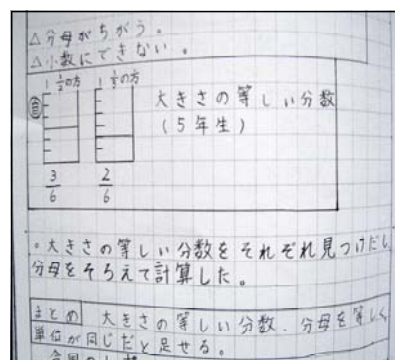 △分母がちがう。
△小数にできない。
1 1/2の方 1 1/3の方
大きさの等しい分数
(5年生)
3/6 2/6
。大きさの等しい分数をそれぞれ見つけだし
分母をそろえて計算した。
まとめ 大きさの等しい分数、分母を等しく
単位が同じだと足せる。